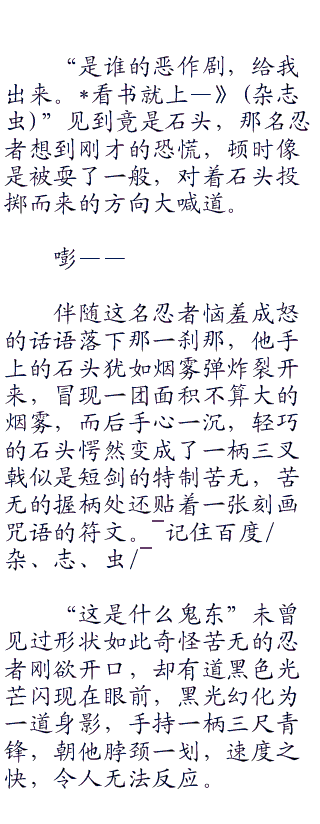 “是谁的恶作剧，给我
出来。*看书就上—》(杂志
虫)”见到竟是石头，那名忍
者想到刚才的恐慌，顿时像
是被耍了一般，对着石头投
掷而来的方向大喊道。
嘭——
伴随这名忍者恼羞成怒
的话语落下那一刹那，他手
上的石头犹如烟雾弹炸裂开
来，冒现一团面积不算大的
烟雾，而后手心一沉，轻巧
的石头愕然变成了一柄三叉
戟似是短剑的特制苦无，苦
无的握柄处还贴着一张刻画
咒语的符文。¯记住百度/
杂、志、虫/¯
“这是什么鬼东”未曾
见过形状如此奇怪苦无的忍
者刚欲开口，却有道黑色光
芒闪现在眼前，黑光幻化为
一道身影，手持一柄三尺青
锋，朝他脖颈一划，速度之
快，令人无法反应。